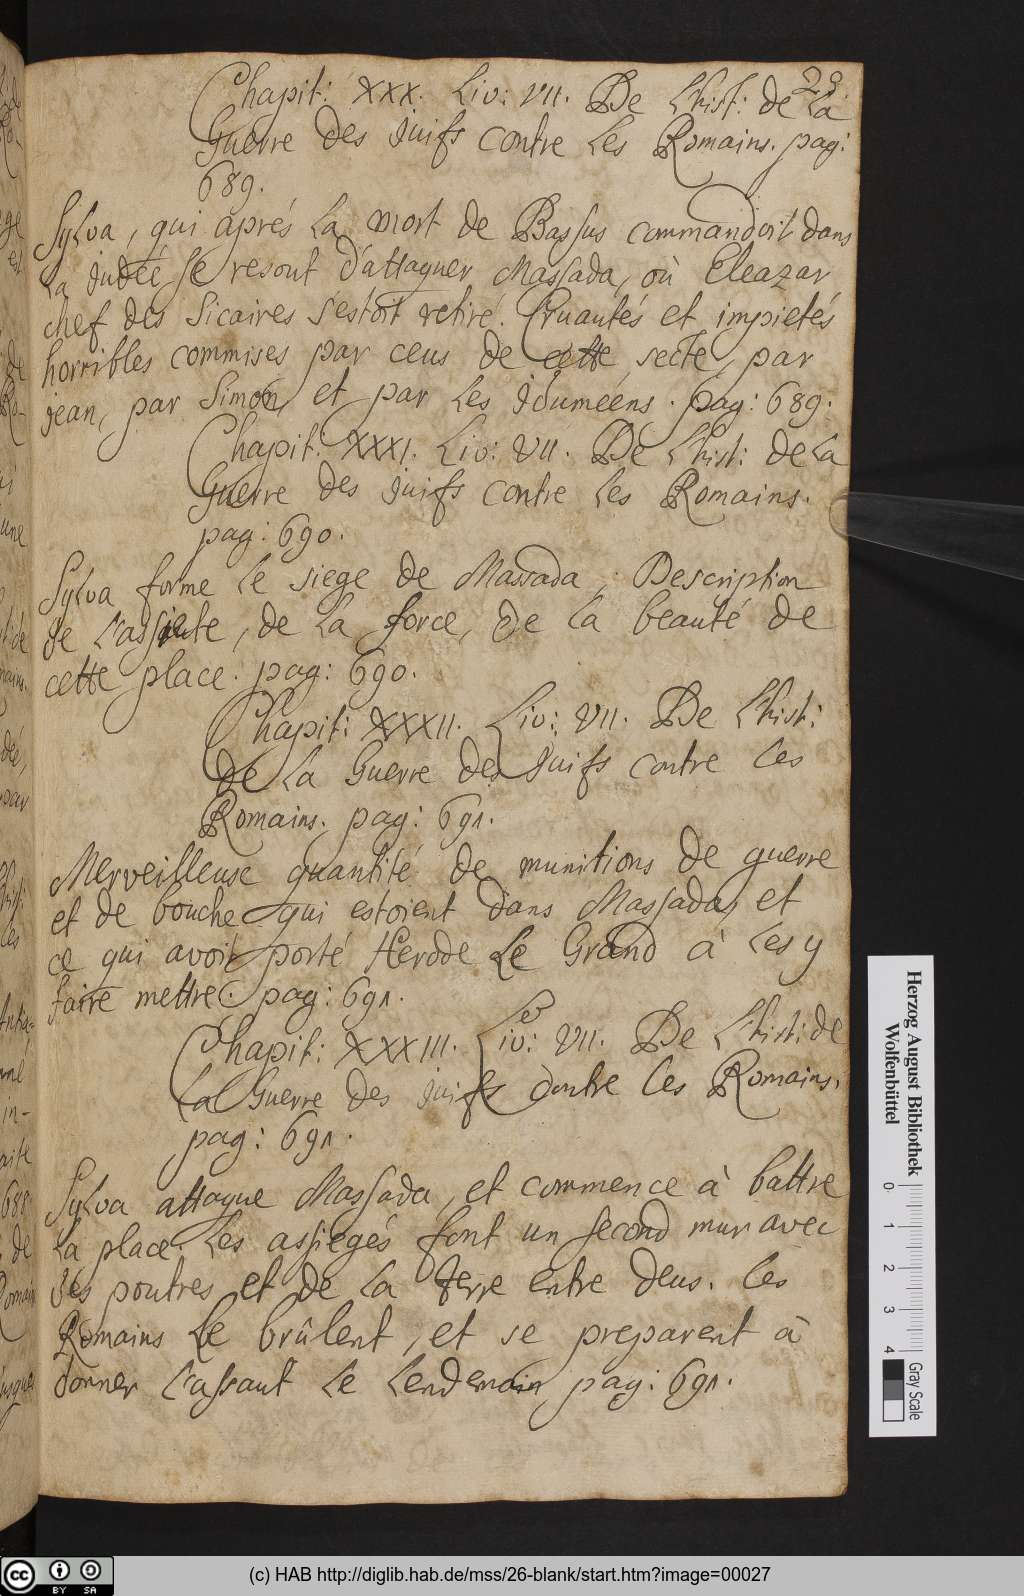 29.
Chapit: XXX. Liv: VII. De L'hist: de La
Guerre des juifs contre Les Romains. pag:
689.
Sylva, qui aprés La mort de Bassus commandoit dans
La judée se resout d'attaquer Massada, où Eleazar
chef des Sicaires s'estoit retiré. Cruautés et impietés
horribles commises par ceus de cette secte, par
jean, par Simon, et par Les Iduméens. pag: 689.
Chapit. XXXI. Liv: VII. De L'hist: de La
Guerre des juifs contre Les Romains.
pag: 690.
Sylva forme Le siege de Massada, Description
de L'assiette, de La force, de La beauté de
cette place. pag: 690.
Chapit: XXXII. Liv: VII. De L'hist:
de La Guerre des juifs contre Les
Romains. pag: 691.
Merveilleuse quantité de munitions de guerre
et de bouche qui estoient dans Massada, et
ce qui avoit porté Herode Le Grand à Les y
faire mettre. pag: 691.
Chapit: XXXIII. Liv: VII. De L'hist: de
La Guerre des juifs contre Les Romains.
pag: 691.
Sylva attaque Massada, et commence à battre
La place. Les assiegés font un second mur avec
des poutres et de La terre entre deus. Les
Romains Le brûlent, et se preparent à
donner L'assaut Le Lendemain pag: 691.
Herzog August Bibliothek
Wolfenbüttel
0 1 2 3 4
Gray Scale
cc BY SA
(c) HAB http://diglib.hab.de/mss/26-blank/start.htm?image=00027